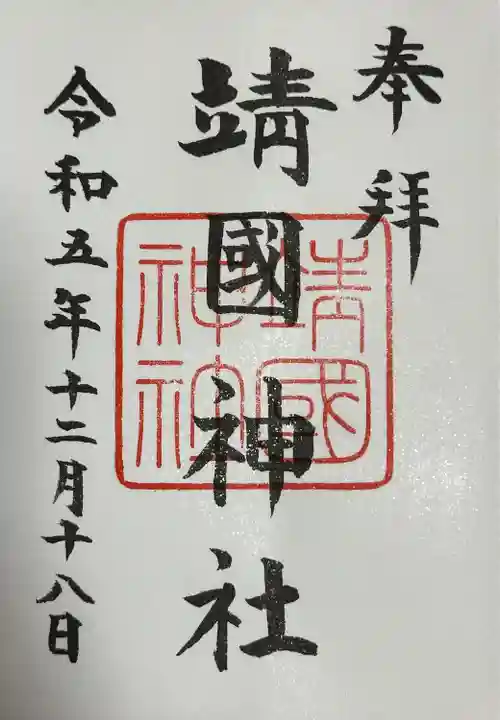 奉拝
靖國神社
靖國
神社
令和五年十二月十八日